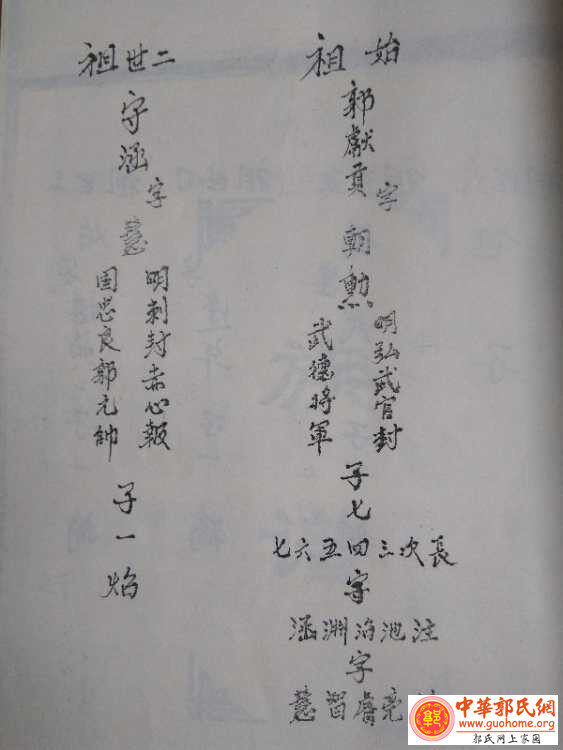 始祖
郭獻貢字朝勲
明弘武官封
武德將軍
子七
長次三四五六七
守
注池淵涵
字
亮智慧
二世祖
守涵字慧
明刺封赤心報
国忠良郭元帥
子一焰
中華郭氏網
www.guohome.org
郭氏网上家園